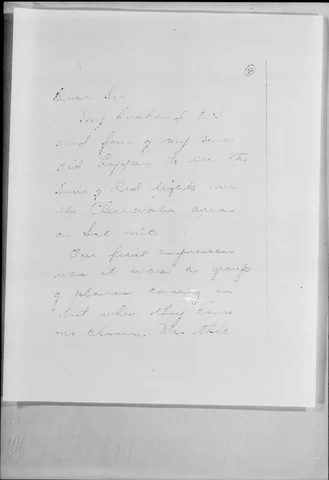 Dear Sir
My husband & I
and four of my sons
did happen to see the
series of Red lights over
the Clearwater area
on Sat nite.
Our first impression
was it was a group
of planes coming in
but when they came
no closer. Was this